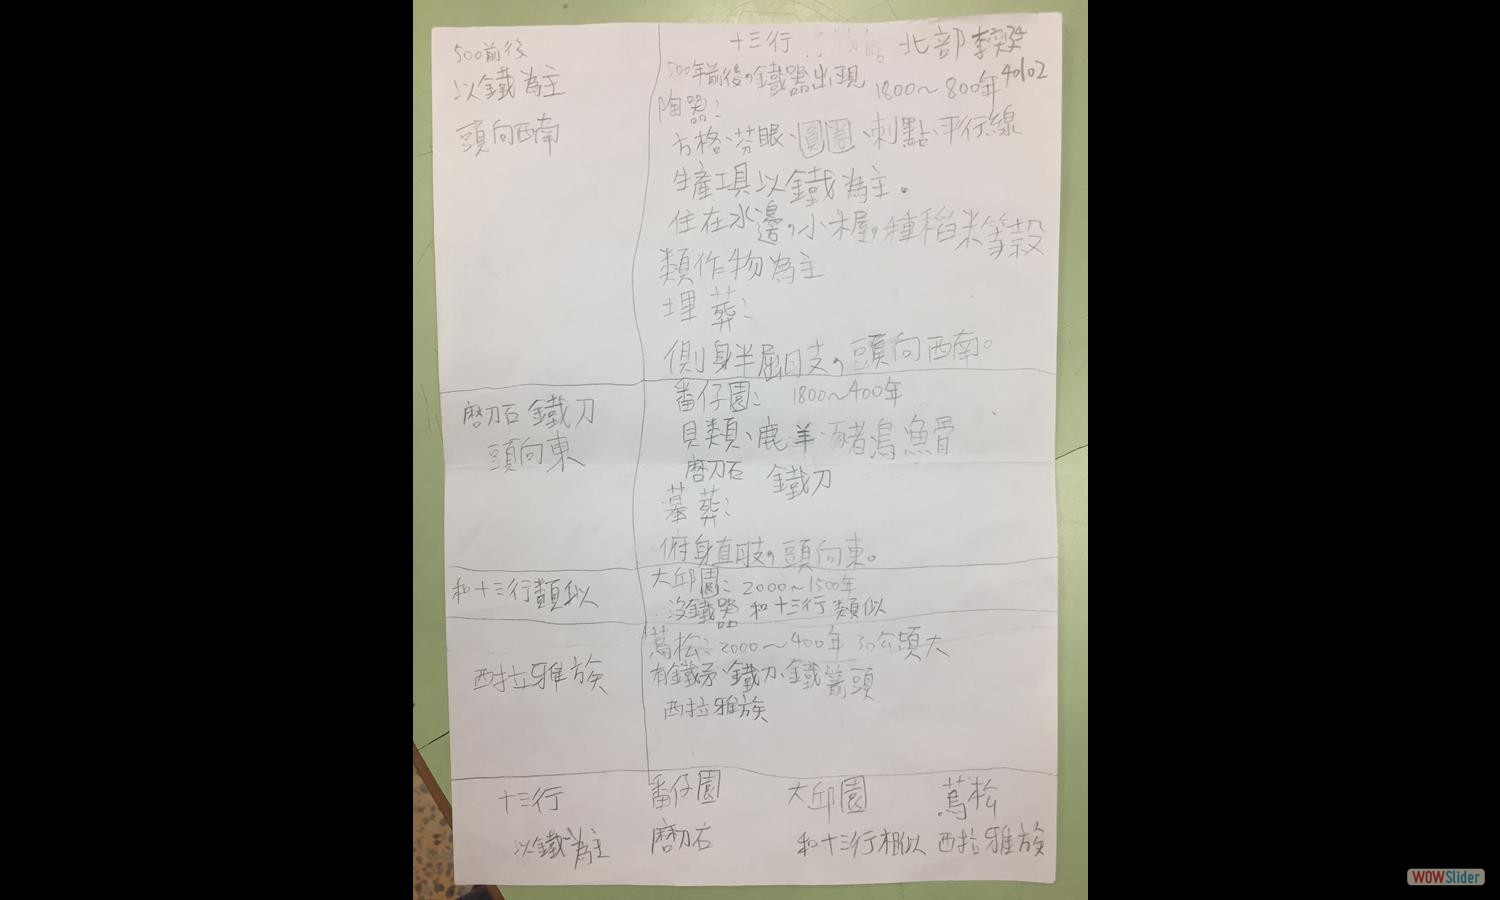 500前後
以鐵為主
頭向西南
十三行 北部 李
40102
500年前後,鐵器出現 1800～800年
陶器:
方格、芬眼、圓圈、刺點、平行線
生產工具以鐵為主。
住在水邊,小米屋,種稻米等穀
類作物為主
埋葬:
側身半屈日支,頭向西南。
磨刀石 鐵刀
頭向東
番仔園: 1800～400年
貝類、鹿羊豬鳥魚骨
磨刀石 鐵刀
墓葬:
俯身直肢,頭向東。
和十三行類似
大邱園: 2000～1500年
沒鐵器 和十三行類似
西拉雅族
蔦松:2000～400年 30公頃大
有鐵矛、鐵刀、鐵箭頭
西拉雅族
十三行 番仔園 大邱園 蔦松
以鐵為主 磨刀石 和十三行相似 西拉雅族
WOWSlider